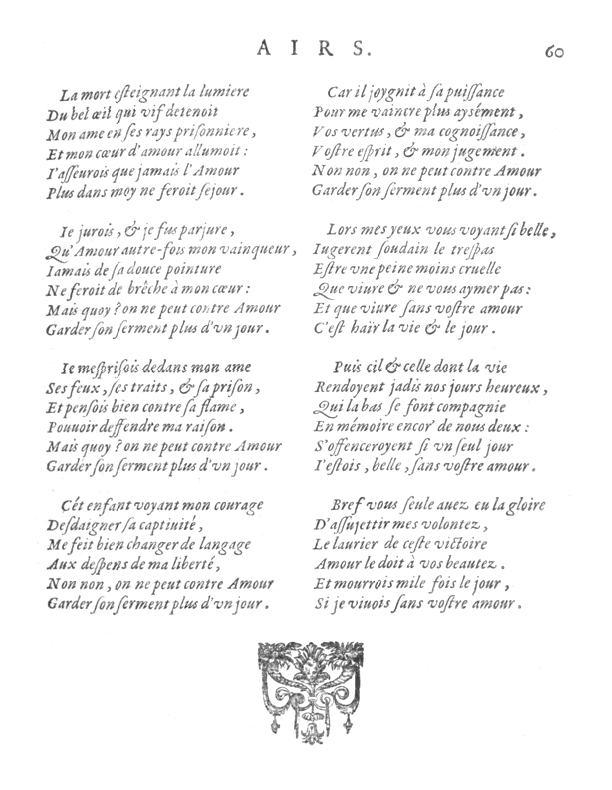 AIRS. 60
La mort esteignant la lumiere
Du bel œil qui vif detenoit
Mon ame en ses rays prisonniere,
Et mon cœur d'amour allumoit :
I'asseurois que jamais l'Amour
Plus dans moy ne feroit sejour.
Ie jurois, & je fus parjure,
Qu'Amour autre-fois mon vainqueur,
Iamais de sa douce pointure
Ne feroit de brêche à mon cœur :
Mais quoy ? on ne peut contre Amour
Garder son serment plus d'vn jour.
Ie mesprisois dedans mon ame
Ses feux, ses traits, & sa prison,
Et pensois bien contre sa flame,
Pouuoir deffendre ma raison.
Mais quoy ? on ne peut contre Amour
Garder son serment plus d'vn jour.
Cét enfant voyant mon courage
Desdaigner sa captiuité,
Me feit bien changer de langage
Aux despens de ma liberté,
Non non, on ne peut contre Amour
Garder son serment plus d'vn jour.
Car il joygnit à sa puissance
Pour me vaincre plus aysément,
Vos vertus, & ma cognoissance,
Vostre esprit, & mon jugement.
Non non, on ne peut contre Amour
Garder son serment plus d'vn jour.
Lors mes yeux vous voyant si belle,
Iugerent soudain le trespas
Estre vne peine moins cruelle
Que viure & ne vous aymer pas :
Et que viure sans vostre amour
C'est haïr la vie & le jour.
Puis cil & celle dont la vie
Rendoyent jadis nos jours heureux,
Qui la bas se font compagnie
En mémoire encor' de nous deux :
S'offenceroyent si vn seul jour
I'estois, belle, sans vostre amour.
Bref vous seule auez eu la gloire
D'assujettir mes volontez,
Le laurier de ceste victoire
Amour le doit à vos beautez.
Et mourrois mile fois le jour,
Si je viuois sans vostre amour.